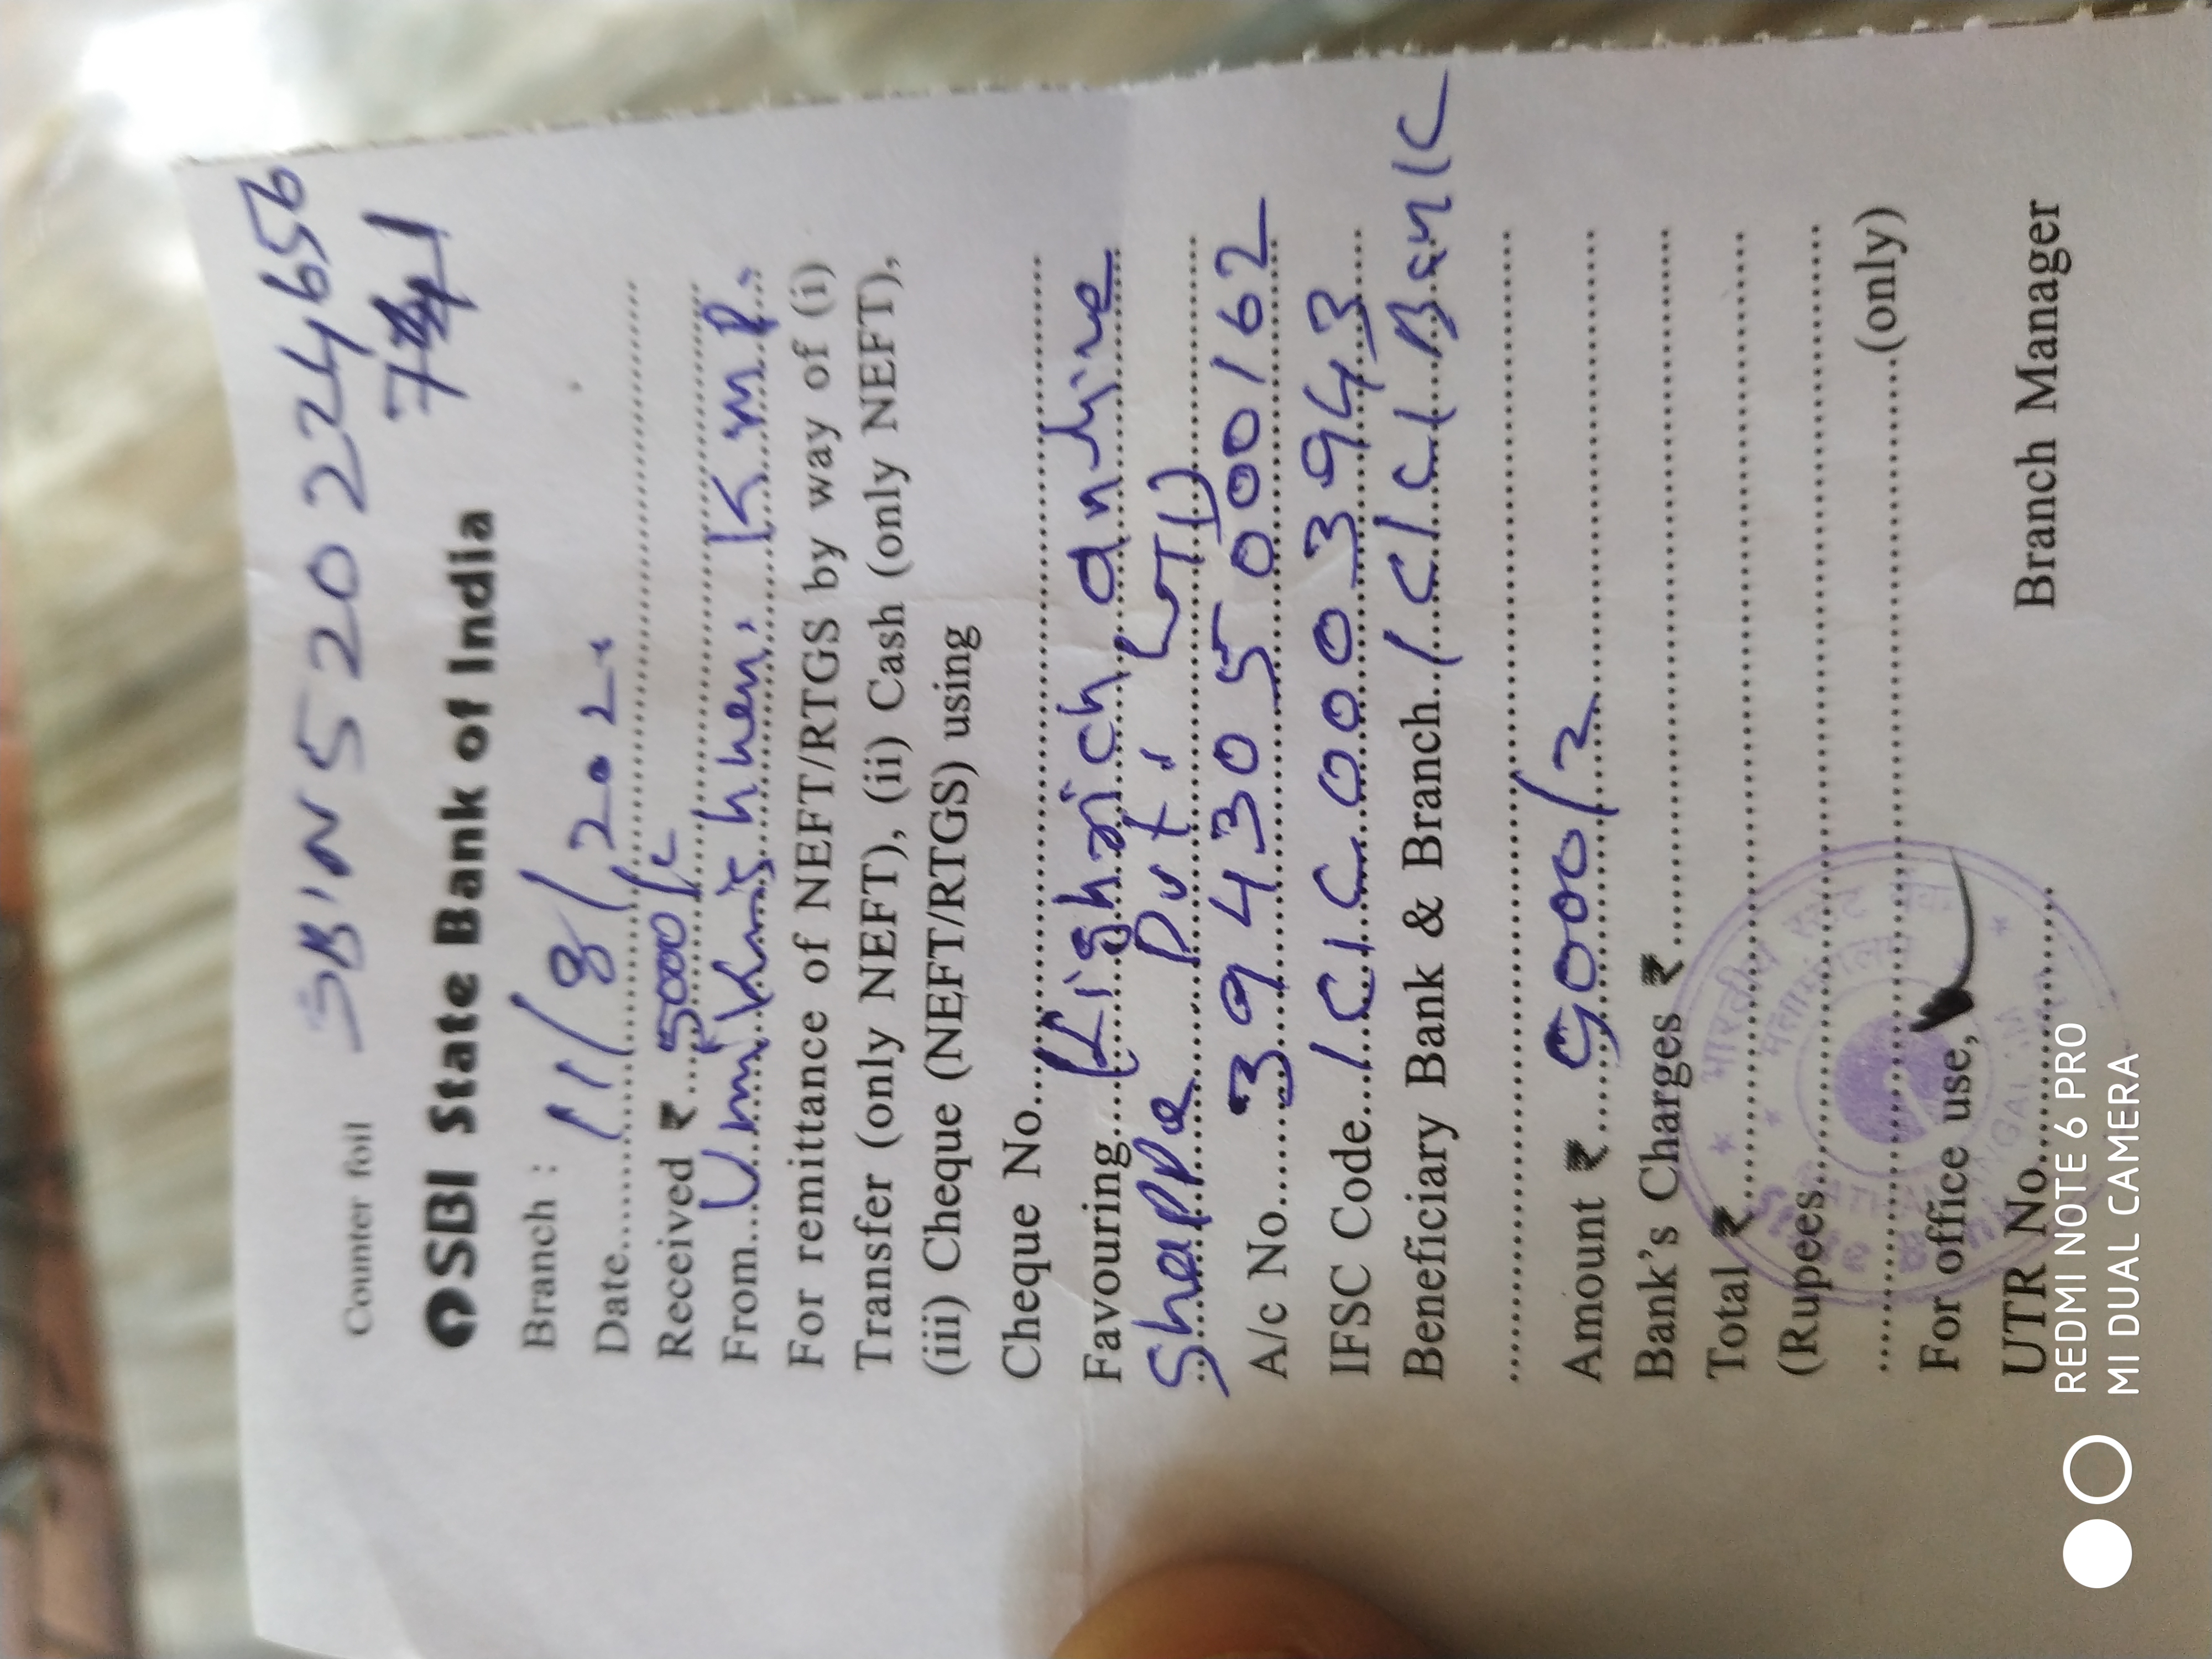 Counter foil SBIN520224656
741
SBI State Bank of India
Branch :
Date 11/8/2020
Received ₹ 5000/-
From Unnikrishnan. K.M.P.
For remittance of NEFT/RTGS by way of (i)
Transfer (only NEFT), (ii) Cash (only NEFT),
(iii) Cheque (NEFT/RTGS) using
Cheque No
Favouring Highrich online
Shoppe Pvt. LTD
A/c No. 394305000162
IFSC Code ICIC0003943
Beneficiary Bank & Branch ICICI Bank
Amount ₹ 5000/-
Bank's Charges ₹
Total ₹
(Rupees
(only)
For office use,
UTR No. Branch Manager
REDMI NOTE 6 PRO
MI DUAL CAMERA